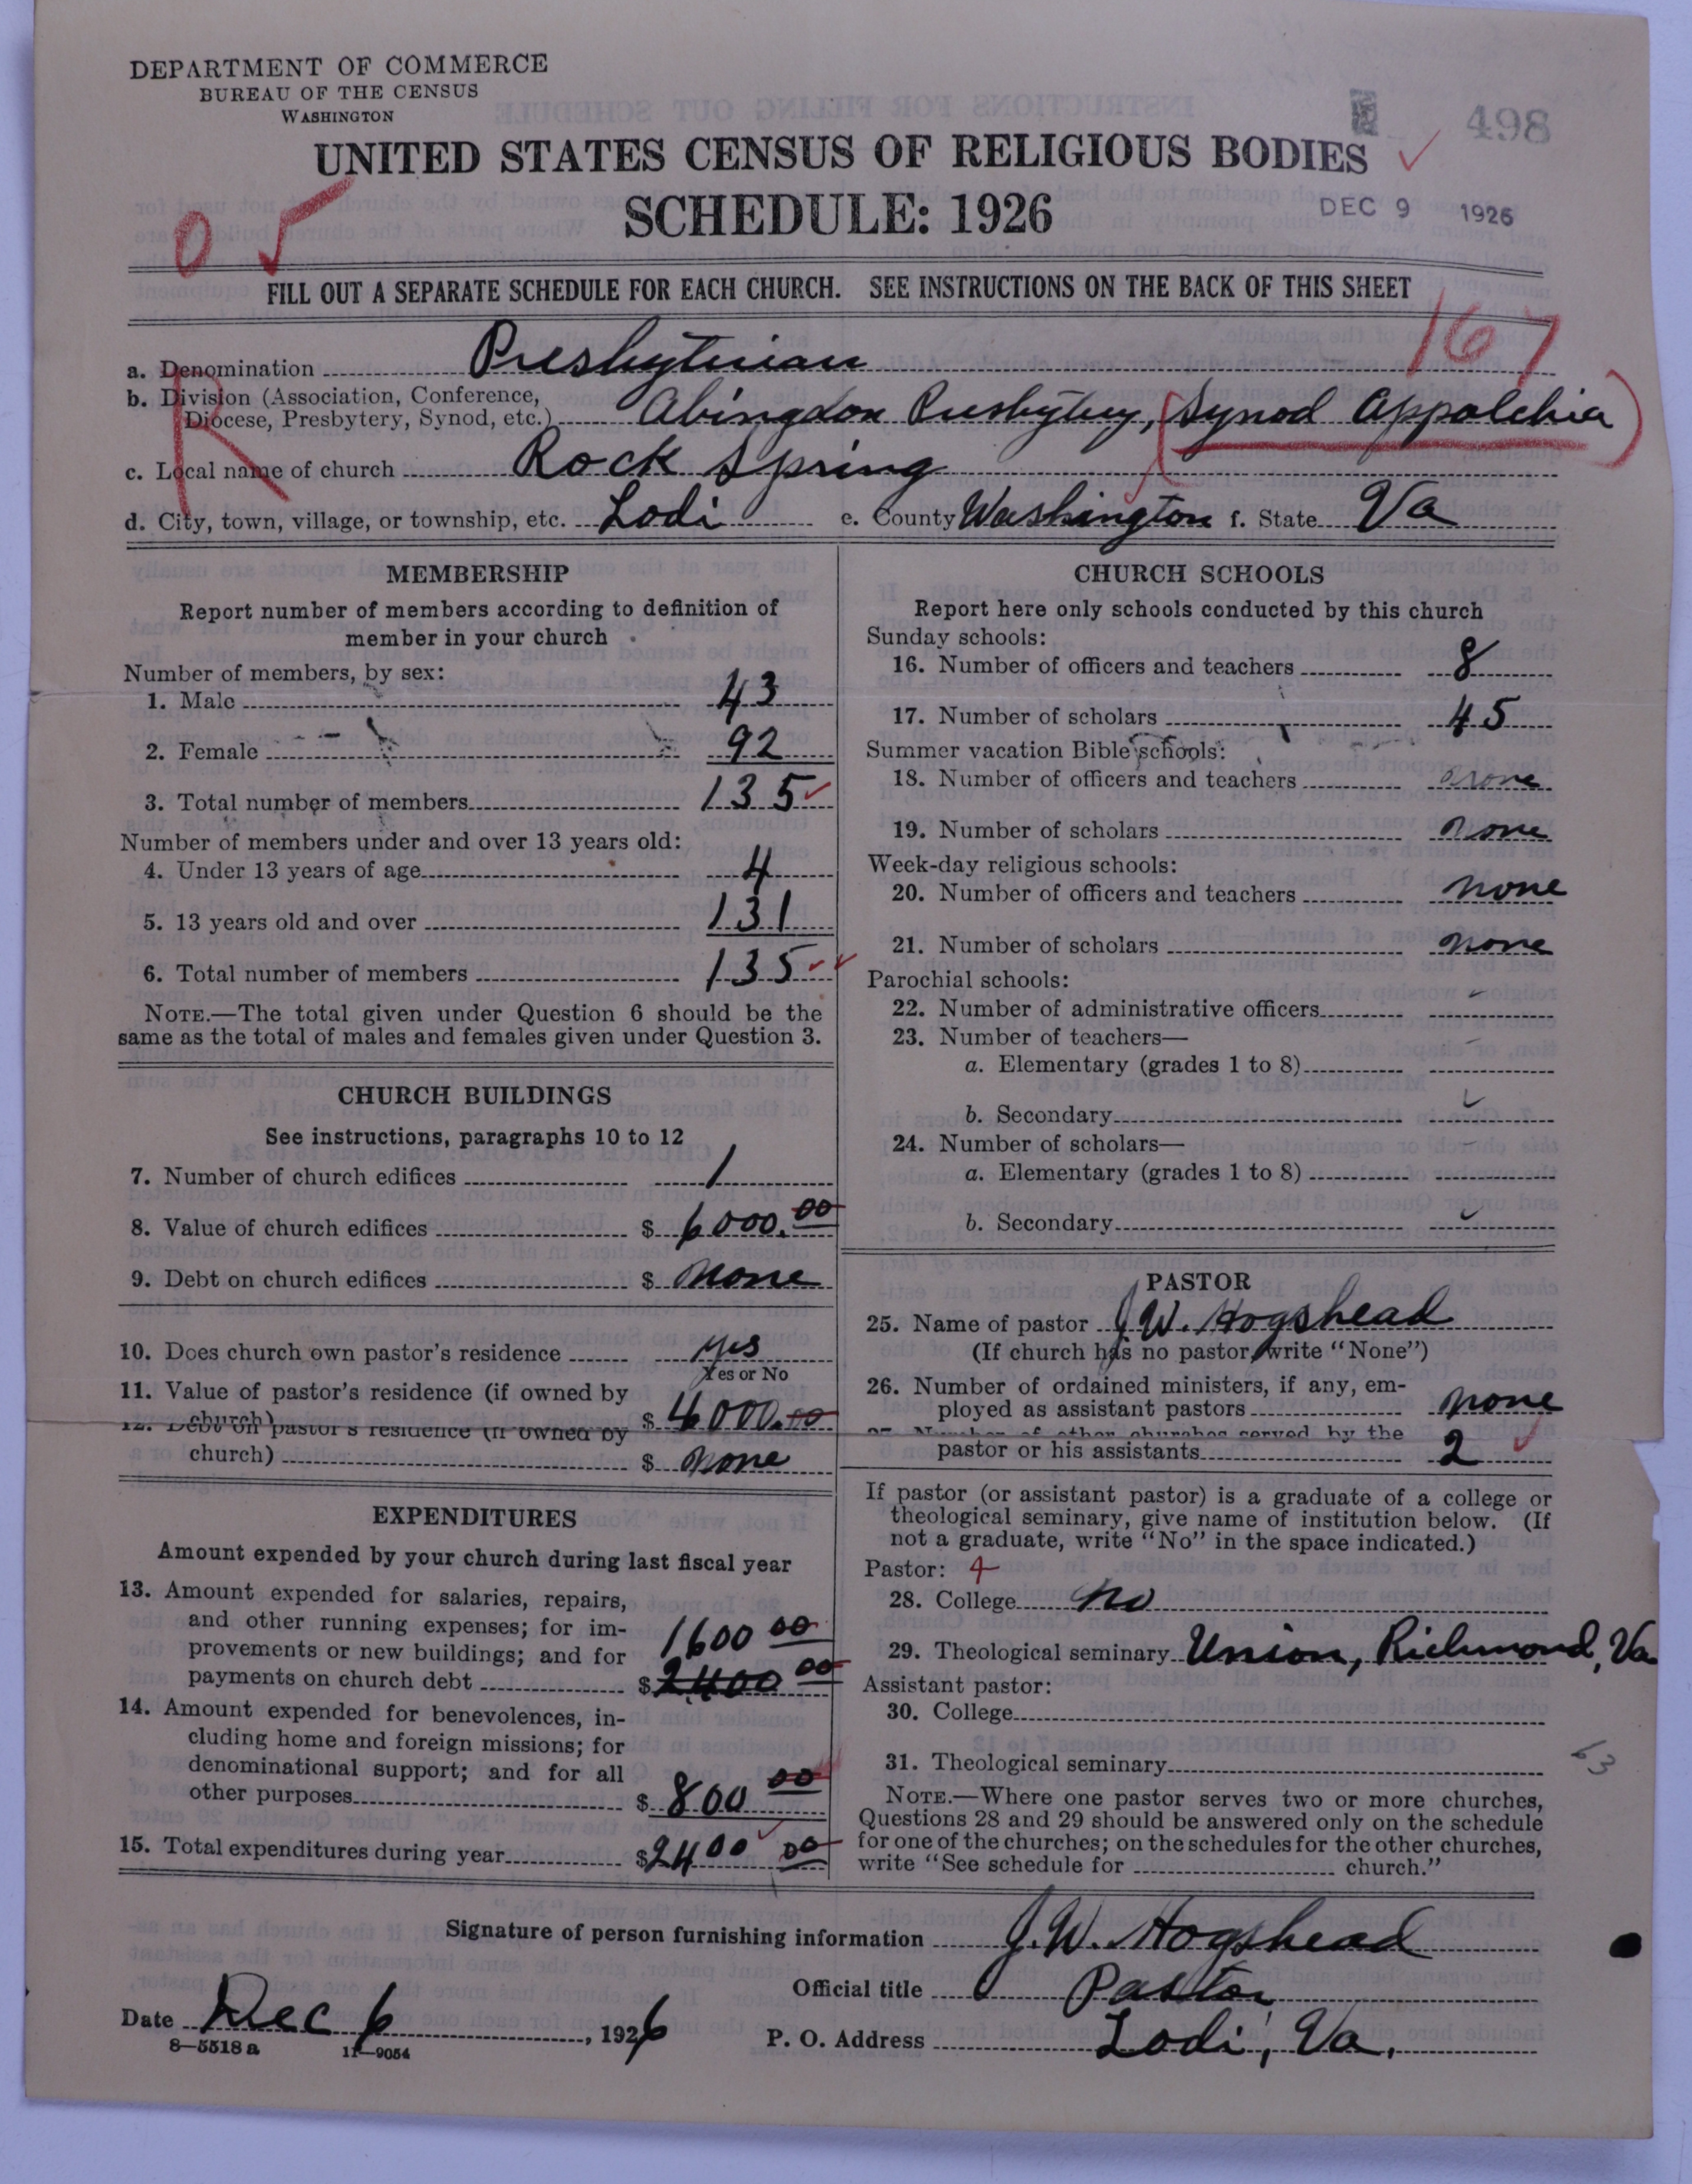 DEPARTMENT OF COMMERCE
BUREAU OF THE CENSUS
WASHINGTON
498
UNITED STATES CENSUS OF RELIGIOUS BODIES
SCHEDULE: 1926
DEC 9 1926
0
FILL OUT A SEPARATE SCHEDULE FOR EACH CHURCH. SEE INSTRUCTIONS ON THE BACK OF THIS SHEET
167
R
a. Denomination Presbyterian
b. Division (Association, Conference,
Diocese, Presbytery, Synod, etc.) Abingdon Presbytery, (Synod Appalchia)
c. Local name of church Rock Spring
d. City, town, village, or township, etc. Lodi e. County Washington f. State Va
MEMBERSHIP
Report number of members according to definition of
member in your church
Number of members, by sex:
1. Male 43
2. Female 92
3. Total number of members 135
Number of members under and over 13 years old:
4. Under 13 years of age 4
5. 13 years old and over 131
6. Total number of members 135
NOTE.—The total given under Question 6 should be the
same as the total of males and females given under Question 3.
CHURCH BUILDINGS
See instructions, paragraphs 10 to 12
7. Number of church edifices 1
8. Value of church edifices $ 6000.00
9. Debt on church edifices $ none
10. Does church own pastor's residence yes
Yes or No
11. Value of pastor's residence (if owned by
church) $ 4000.00
12. Debt on pastor's residence (if owned by
church) $ none
EXPENDITURES
Amount expended by your church during last fiscal year
13. Amount expended for salaries, repairs,
and other running expenses; for im-
provements or new buildings; and for 1600 00
payments on church debt $ 2400 00
14. Amount expended for benevolences, in-
cluding home and foreign missions; for
denominational support; and for all
other purposes $ 800 00
15. Total expenditures during year $ 2400 00
CHURCH SCHOOLS
Report here only schools conducted by this church
Sunday schools:
16. Number of officers and teachers 8
17. Number of scholars 45
Summer vacation Bible schools:
18. Number of officers and teachers none
19. Number of scholars none
Week-day religious schools:
20. Number of officers and teachers none
21. Number of scholars none
Parochial schools:
22. Number of administrative officers
23. Number of teachers—
a. Elementary (grades 1 to 8)
b. Secondary
24. Number of scholars—
a. Elementary (grades 1 to 8)
b. Secondary
PASTOR
25. Name of pastor J.W. Hogshead
(If church has no pastor, write "None")
26. Number of ordained ministers, if any, em-
ployed as assistant pastors none
27. Number of other churches served by the
pastor or his assistants 2
If pastor (or assistant pastor) is a graduate of a college or
theological seminary, give name of institution below. (If
not a graduate, write "No" in the space indicated.)
Pastor: 4
28. College No
29. Theological seminary Union, Richmond, Va
Assistant pastor:
30. College
31. Theological seminary
63
NOTE.—Where one pastor serves two or more churches,
Questions 28 and 29 should be answered only on the schedule
for one of the churches; on the schedules for the other churches,
write "See schedule for church."
Signature of person furnishing information J.W. Hogshead
Official title Pastor
Date Dec 6, 1926
P. O. Address Lodi, Va.
8—5518 a 11—9054